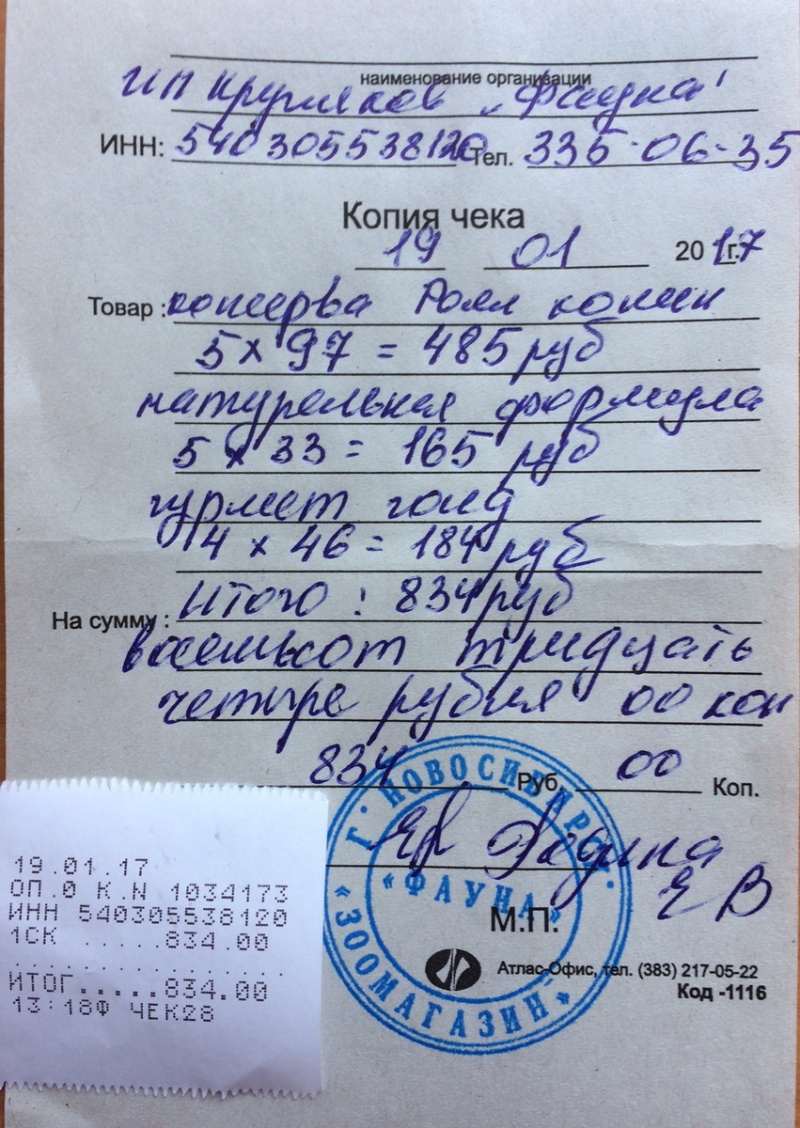 наименование организации
ИП Кругляков „Фауна"
ИНН: 540305538120 Тел. 335-06-35
Копия чека
19 01 2017 г.
Товар: консерва Роял конин
5 х 97 = 485 руб
натуральная формула
5 х 33 = 165 руб
гурмет голд
4 х 46 = 184 руб
Итого: 834 руб
На сумму:
восемьсот тридцать
четыре рубля 00 коп
834 Руб. 00 Коп.
Федина
Е В
М.П.
Г. НОВОСИБИРСК.
«ФАУНА»
«ЗООМАГАЗИН»
Атлас-Офис, тел. (383) 217-05-22
Код -1116
19.01.17
ОП.0 К.N 1034173
ИНН 540305538120
1СК .....834.00
.................
ИТОГ.....834.00
13:18Ф ЧЕК28